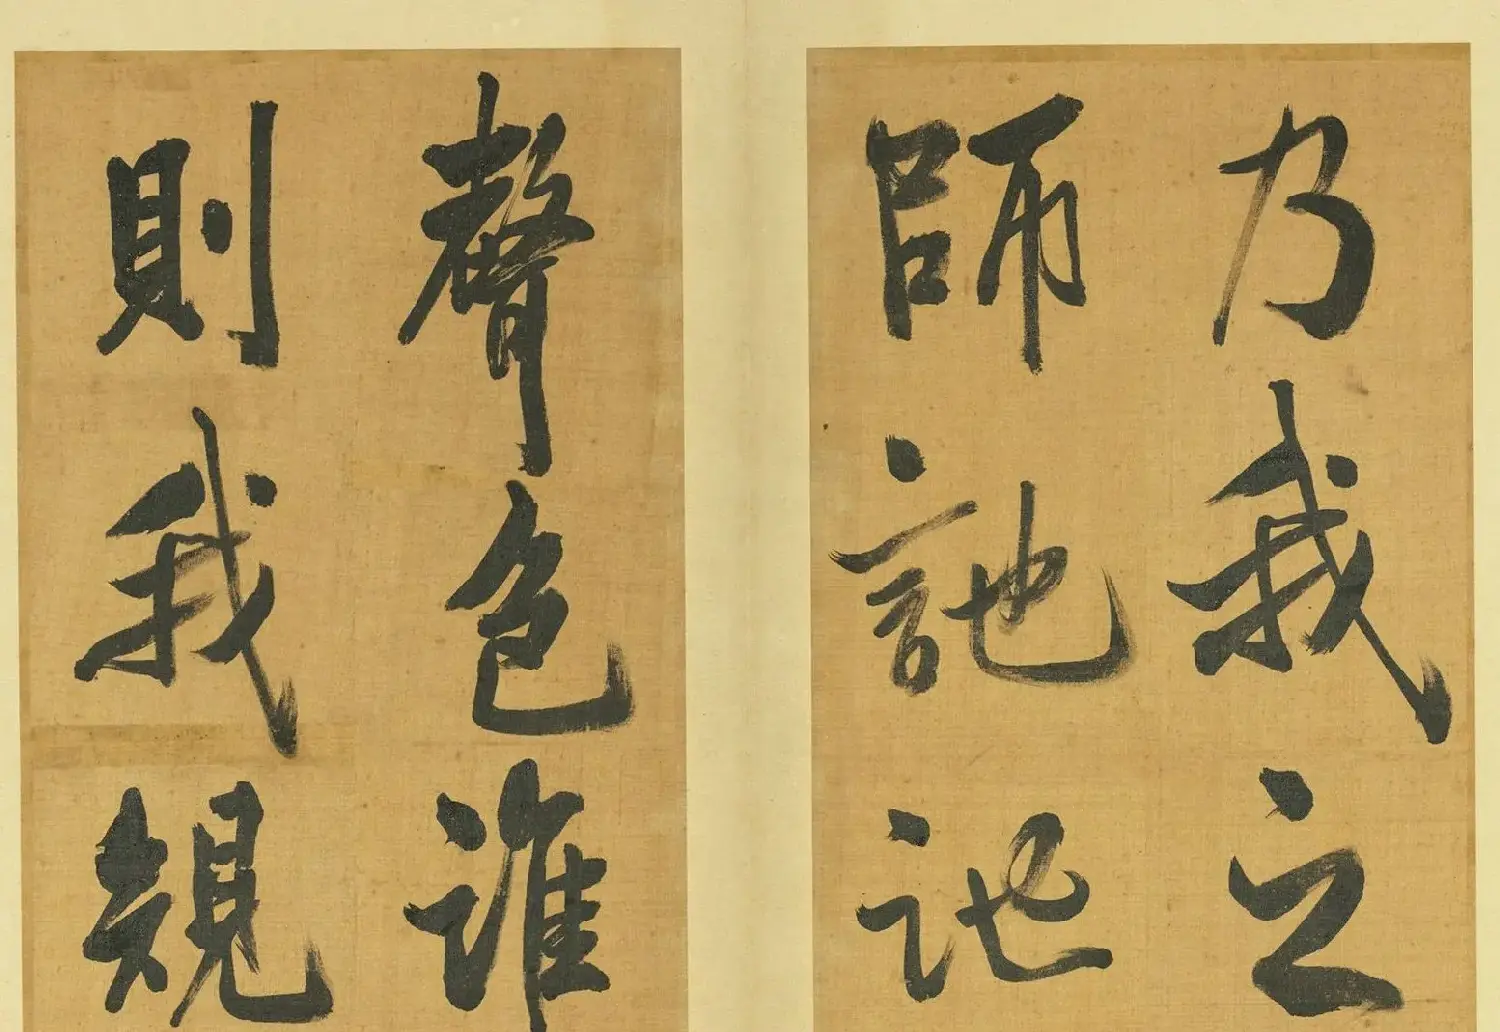 乃我之
師訑訑
聲色誰
則我規